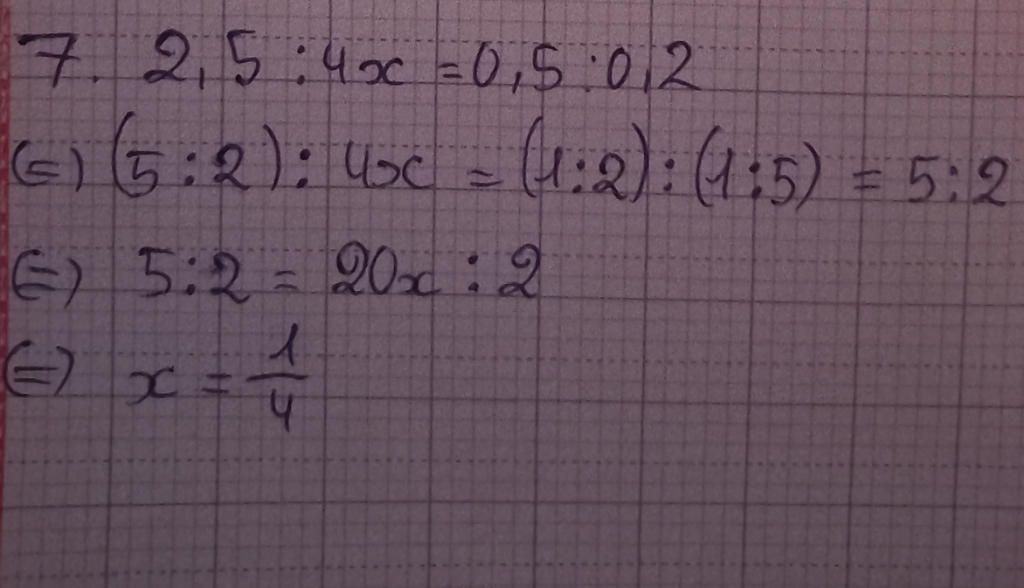 7. 2,5 : 4x = 0,5 : 0,2
(=) (5 : 2) : 4x = (1 : 2) : (1 : 5) = 5 : 2
(=) 5 : 2 = 20x : 2
(=) x = 1/4